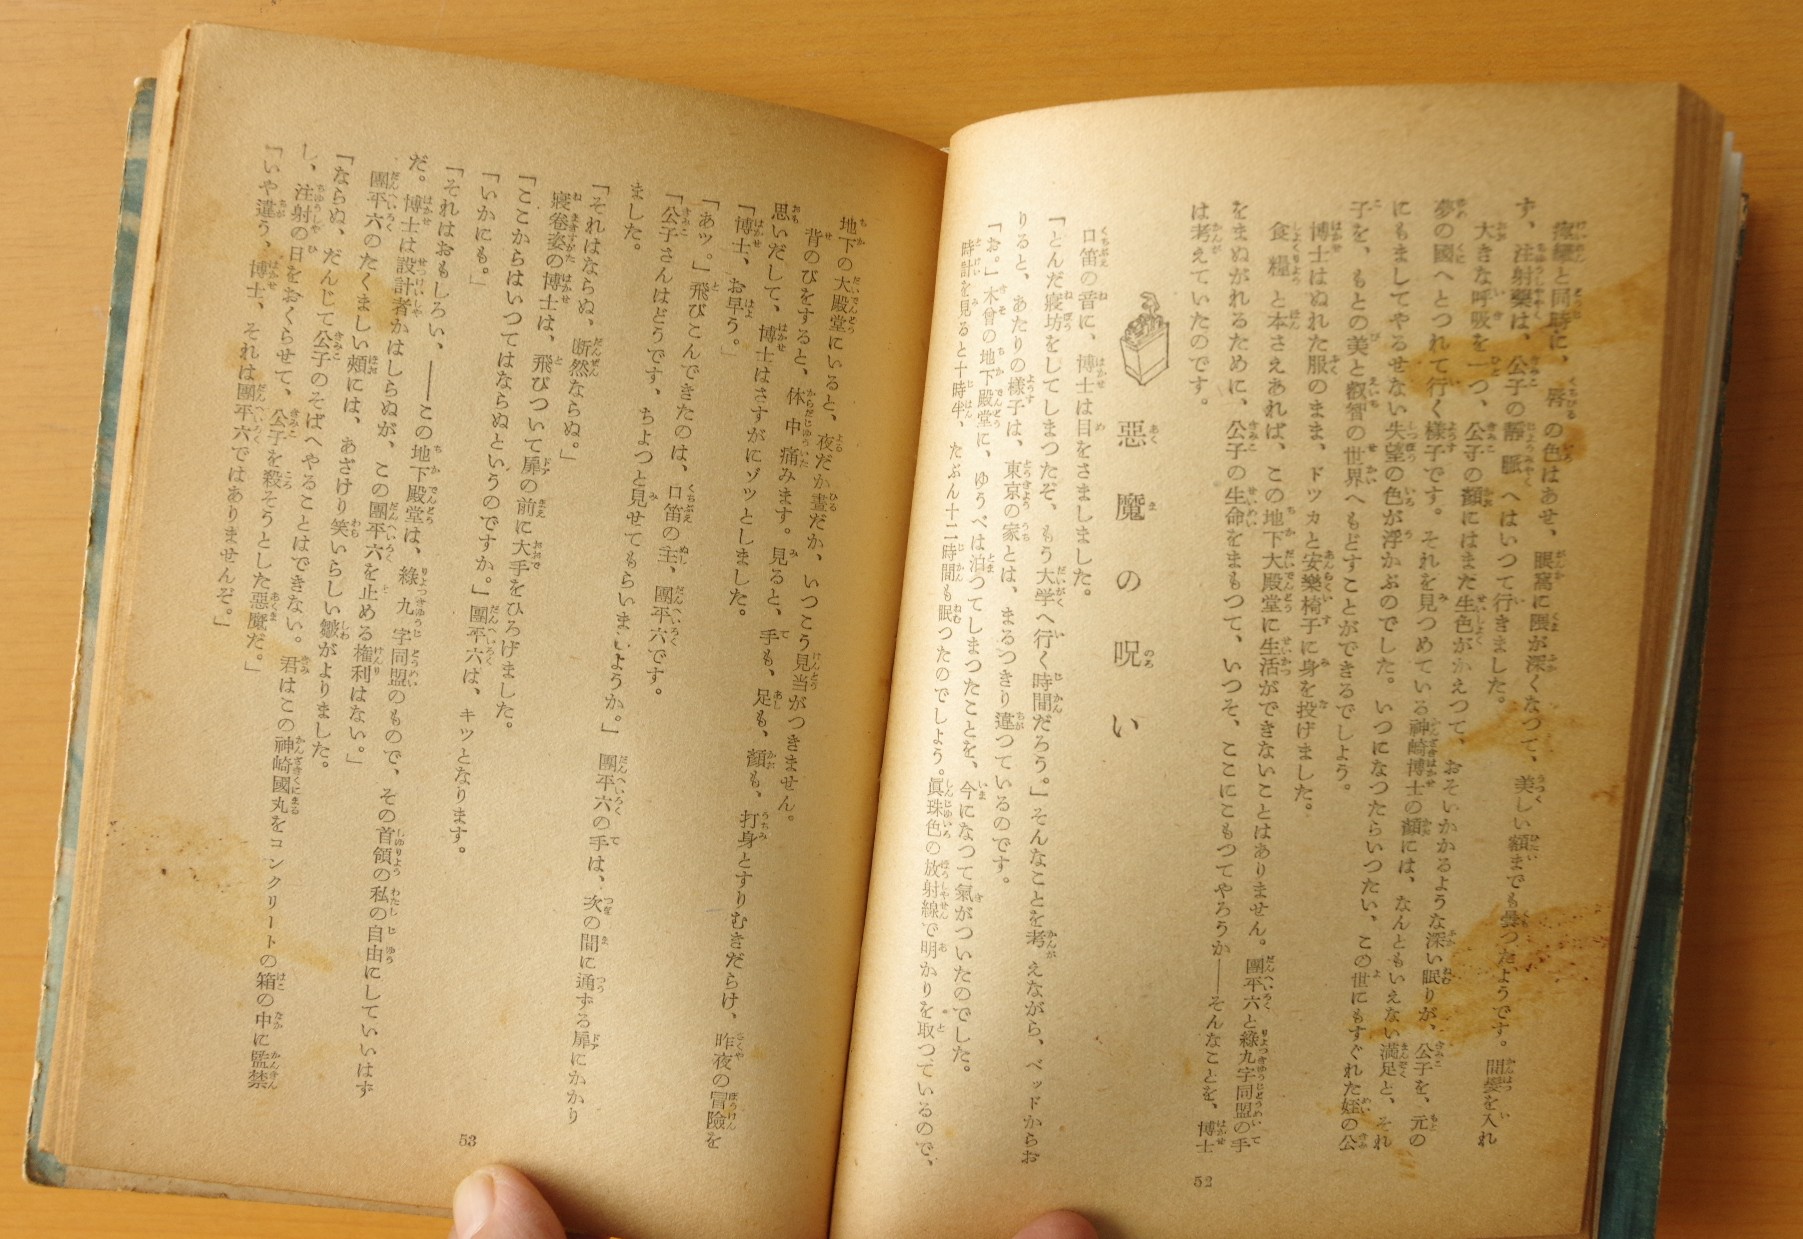 痙攣と同時に、唇の色はあせ、眼窩に隈が深くなつて、美しい額までも曇つたようです。間髪を入れ
ず、注射藥は、公子の靜脈へはいつて行きました。
大きな呼吸を一つ、公子の顏にはまた生色がかえつて、おそいかかるような深い眠りが、公子を、元の
夢の國へとつれて行く樣子です。それを見つめている神崎博士の顏には、なんともいえない滿足と、それ
にもましてやるせない失望の色が浮かぶのでした。いつになつたらいつたい、この世にもすぐれた姪の公
子を、もとの美と叡智の世界へもどすことができるでしよう。
博士はぬれた服のまま、ドッカと安樂椅子に身を投げました。
食糧と本さえあれば、この地下大殿堂に生活ができないことはありません。團平六と綠九字同盟の手
をまぬがれるために、公子の生命をまもつて、いつそ、ここにこもつてやろうか――そんなことを、博士
は考えていたのです。
惡魔の呪い
口笛の音に、博士は目をさましました。
「とんだ寢坊をしてしまつたぞ、もう大学へ行く時間だろう。」そんなことを考えながら、ベッドからお
りると、あたりの樣子は、東京の家とは、まるつきり違つているのです。
「お。」木曾の地下殿堂に、ゆうべは泊つてしまつたことを、今になつて氣がついたのでした。
時計を見ると十時半、たぶん十二時間も眠つたのでしよう。眞珠色の放射線で明かりを取つているので、
52
地下の大殿堂にいると、夜だか晝だか、いつこう見当がつきません。
背のびをすると、体中痛みます。見ると、手も、足も、顏も、打身とすりむきだらけ、昨夜の冒險を
思いだして、博士はさすがにゾッとしました。
「博士、お早う。」
「あッ。」飛びこんできたのは、口笛の主、團平六です。
「公子さんはどうです、ちよつと見せてもらいましようか。」團平六の手は、次の間に通ずる扉にかかり
ました。
「それはならぬ、断然ならぬ。」
寢卷姿の博士は、飛びついて扉の前に大手をひろげました。
「ここからはいつてはならぬというのですか。」團平六は、キッとなります。
「いかにも。」
「それはおもしろい、――この地下殿堂は、綠九字同盟のもので、その首領の私の自由にしていいはず
だ。博士は設計者かはしらぬが、この團平六を止める権利はない。」
團平六のたくましい頰には、あざけり笑いらしい皺がよりました。
「ならぬ、だんじて公子のそばへやることはできない。君はこの神崎國丸をコンクリートの箱の中に監禁
し、注射の日をおくらせて、公子を殺そうとした惡魔だ。」
「いや違う、博士、それは團平六ではありませんぞ。」
53